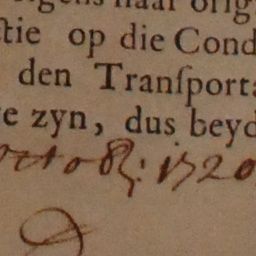 naar orig
stie op die Cond
den Tranſport
e zyn, dus beyd
octob: 1720